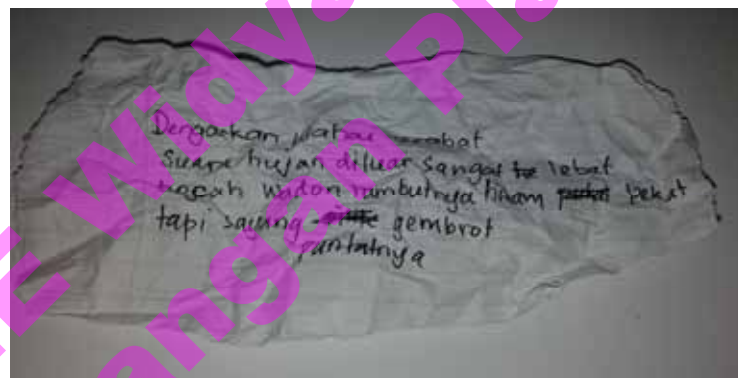 Dengarkan wahai sobat
Suara hujan diluar sangat lebat
wadon rambutnya hitam pekat
tapi sayang gembrot
pantatnya